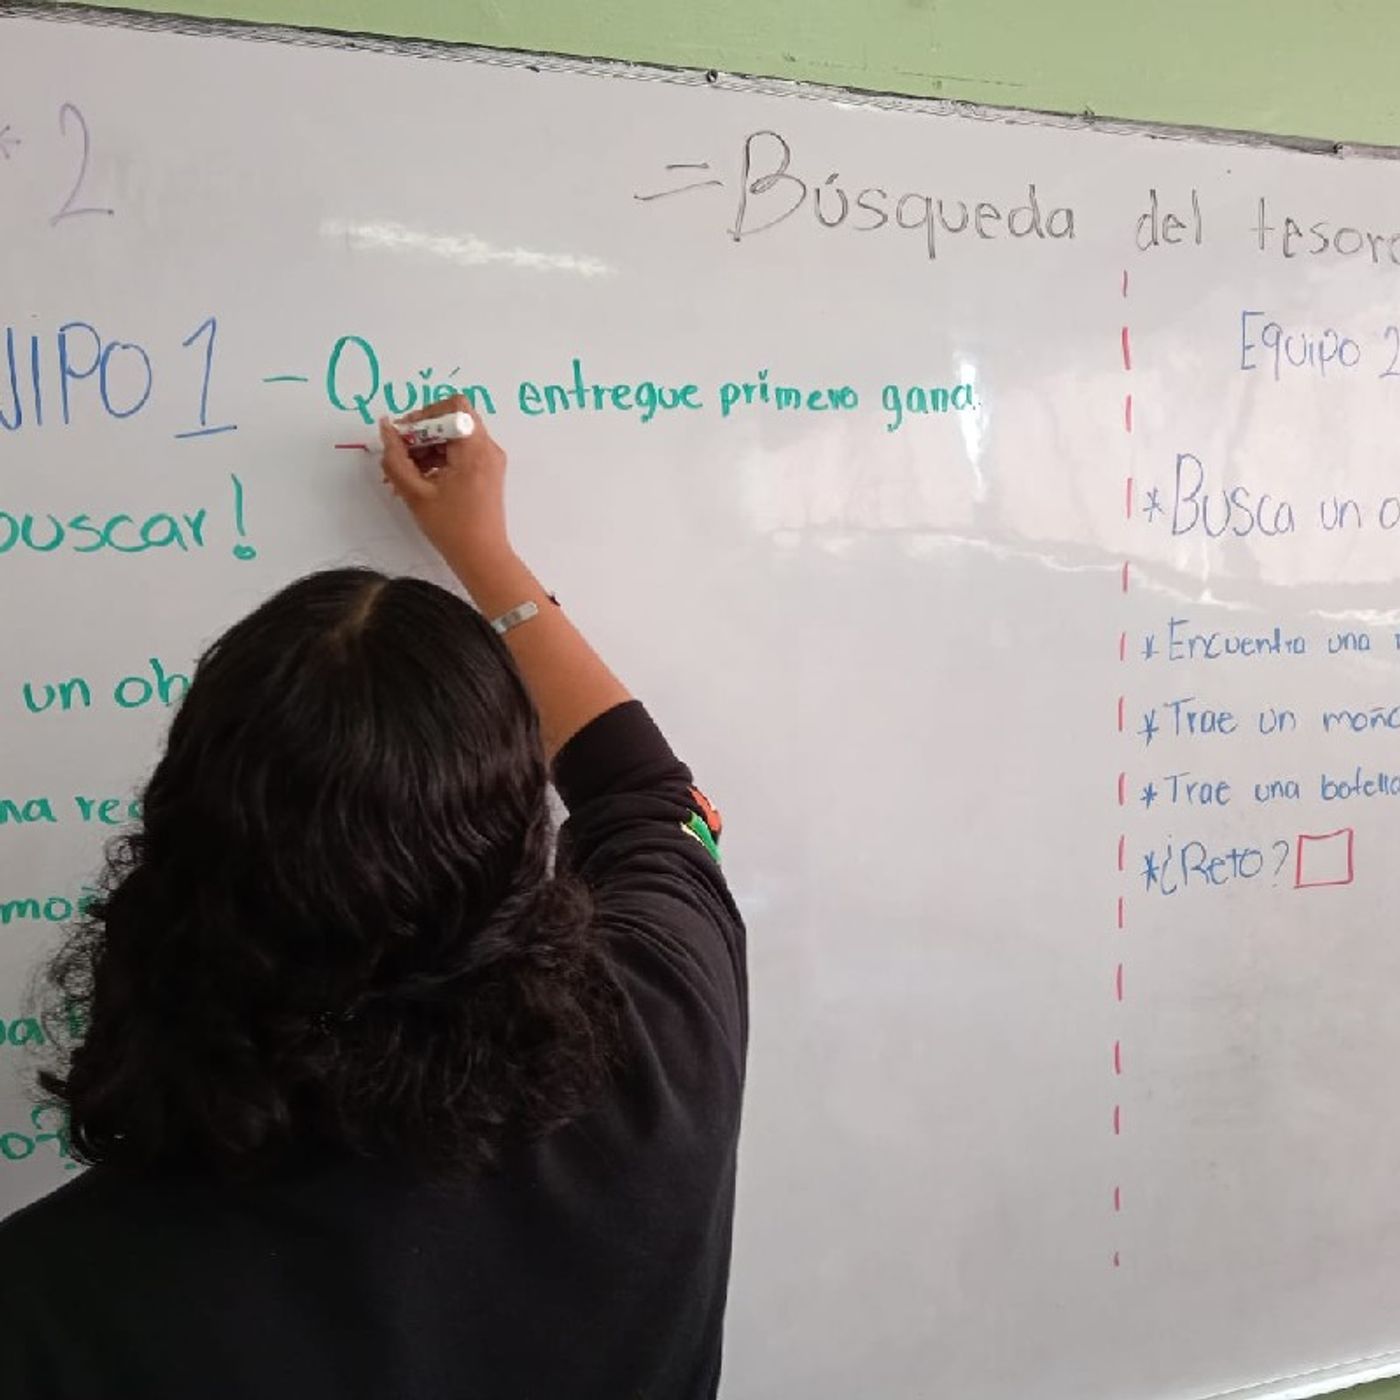 * 2
= Búsqueda del tesoro
EQUIPO 1 - Quién entregue primero gana.
buscar!
un ob
na rec
moñ
o?
Equipo 2
* Busca un o
* Encuentra una
* Trae un moño
* Trae una botella
* ¿Reto?